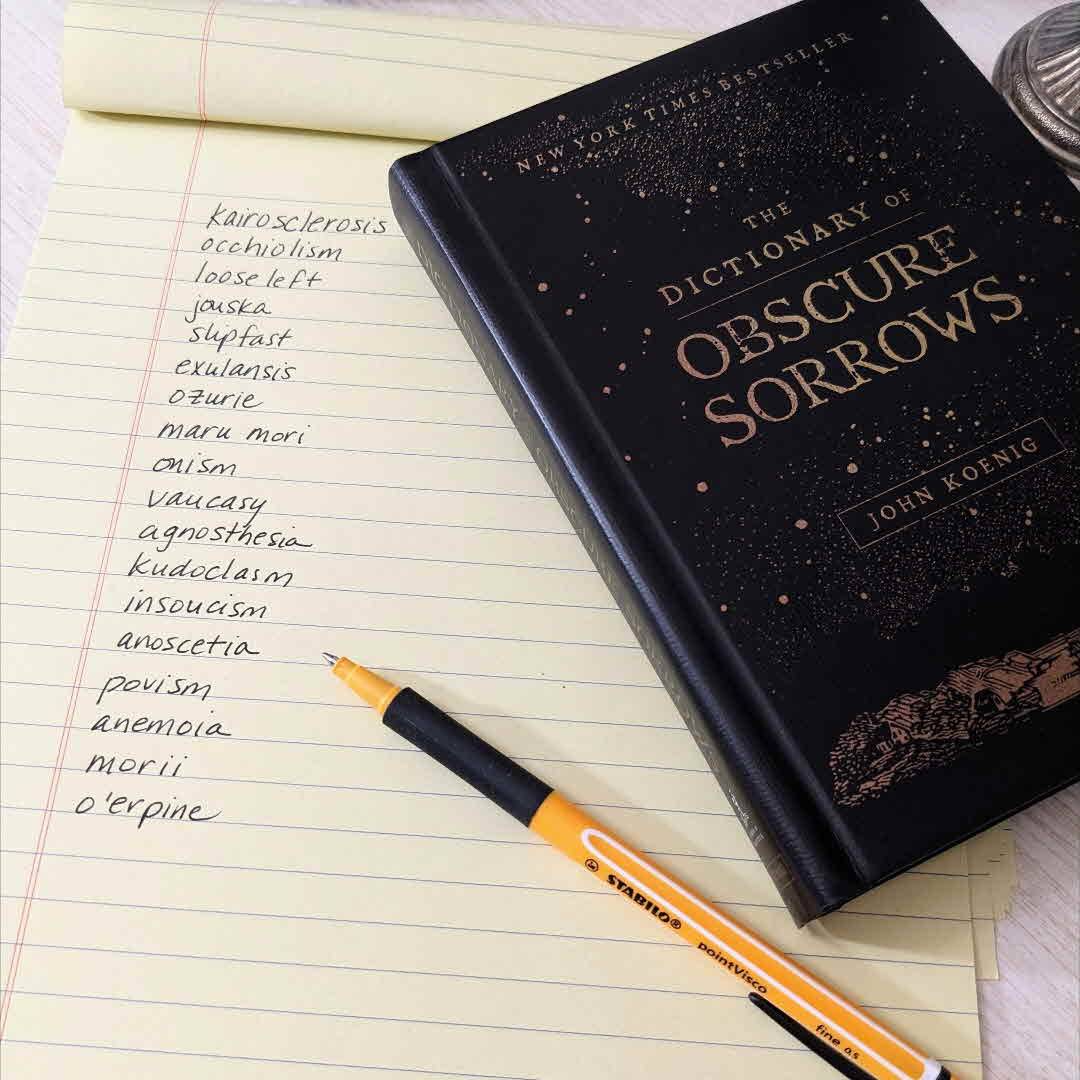 kairosclerosis
occhiolism
looseleft
jouska
slipfast
exulansis
ozurie
maru mori
onism
vaucasy
agnosthesia
kudoclasm
insoucism
anoscetia
povism
anemoia
morii
o'erpine
NEW YORK TIMES BESTSELLER
THE
DICTIONARY OF
OBSCURE
SORROWS
JOHN KOENIG
STABILO®
pointVisco
fine 0.5